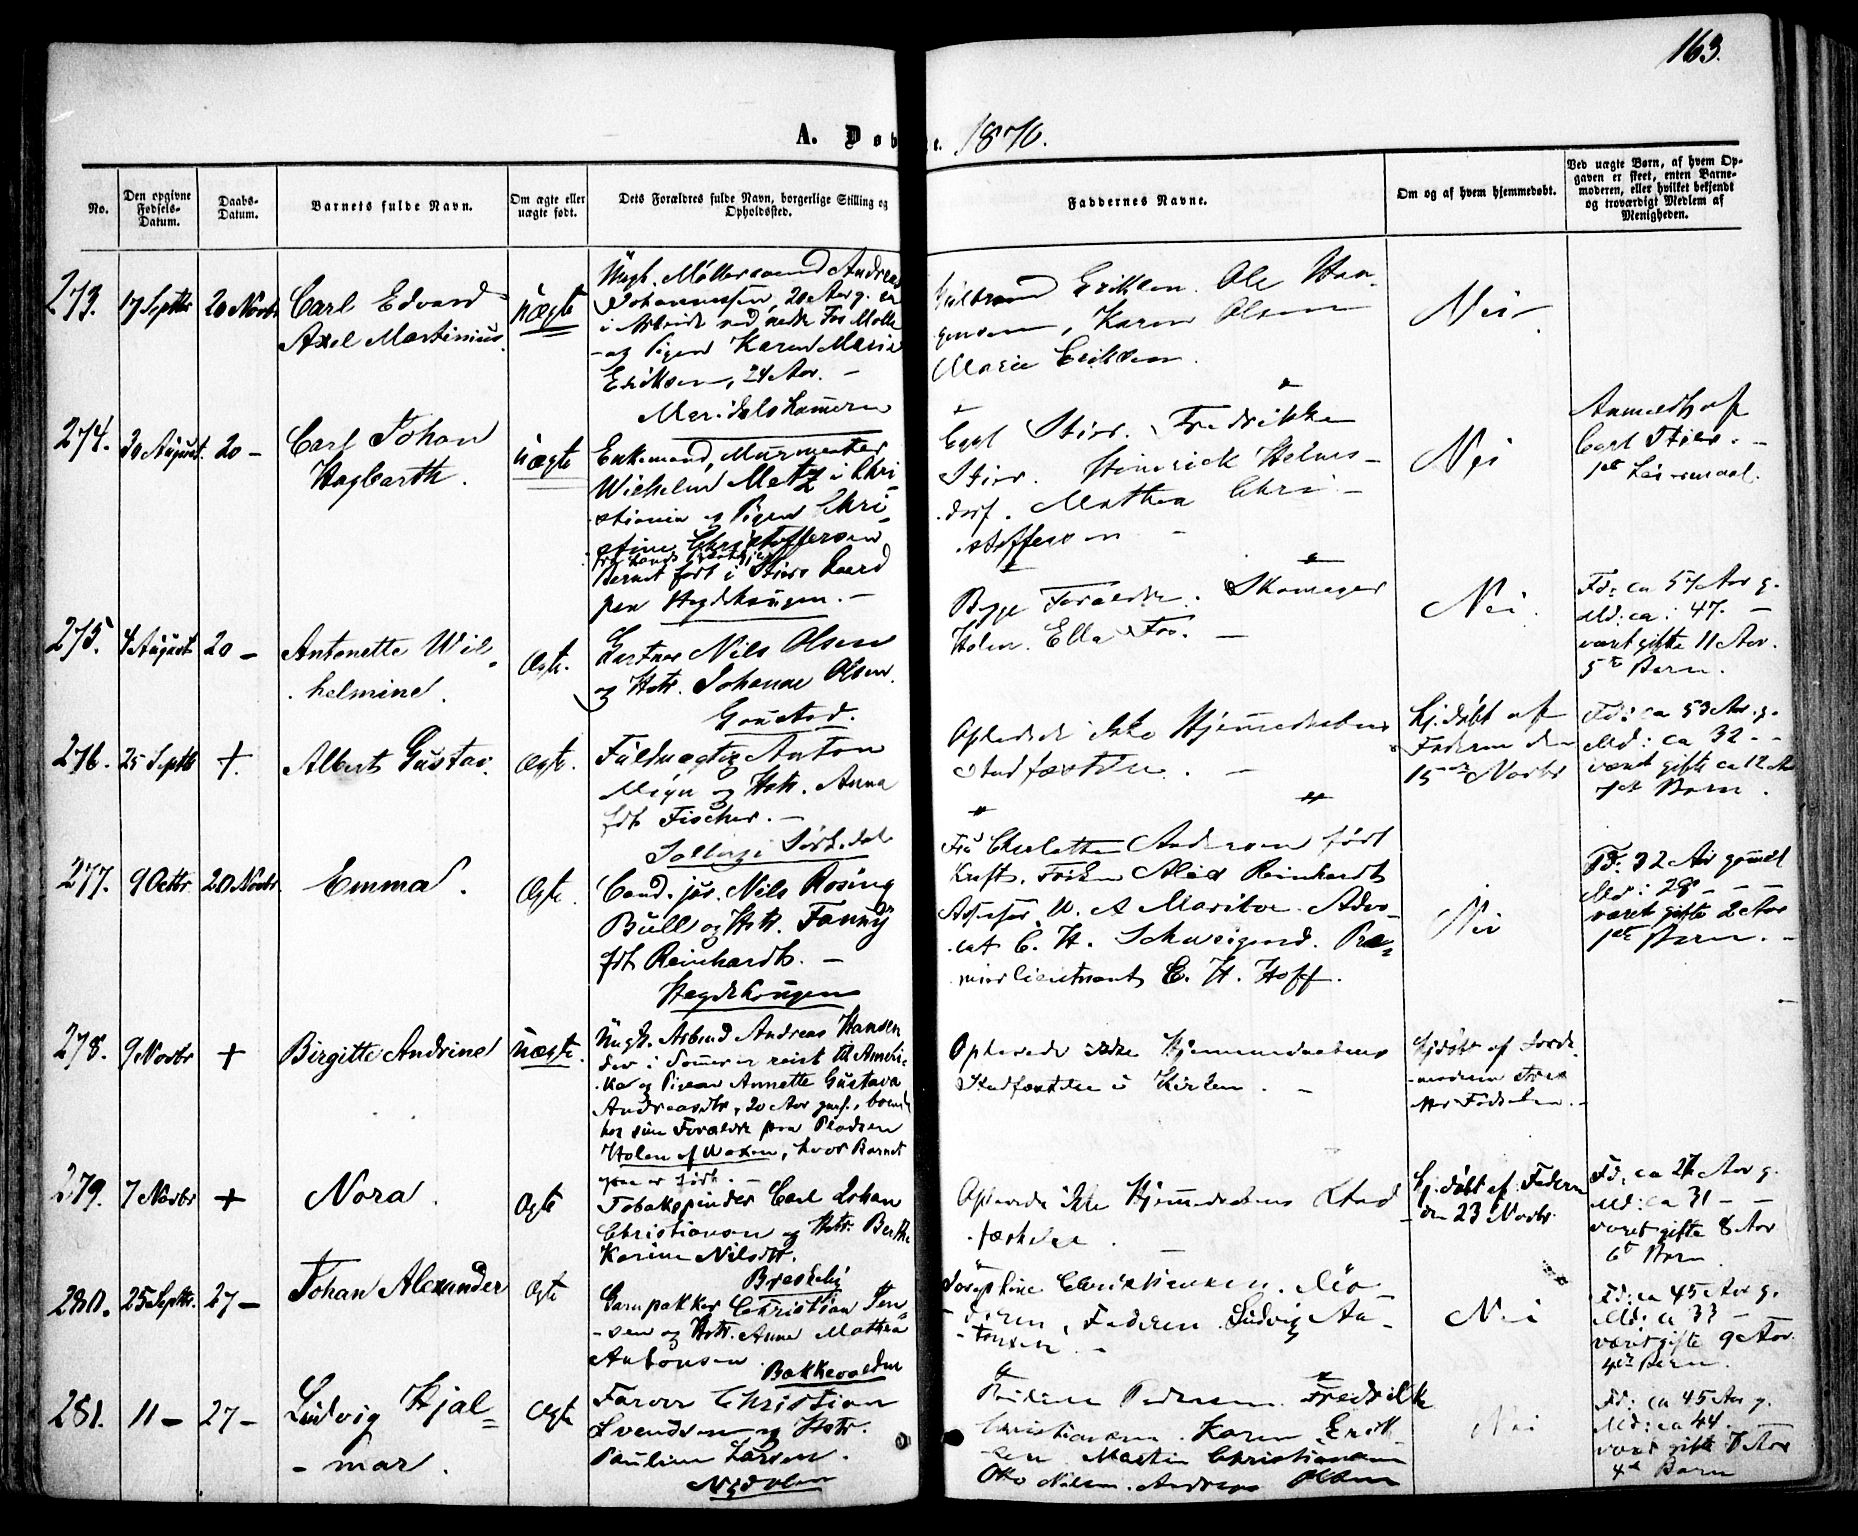 163.
A. Døb e. 1870.
No.
Den opgivne Fødsels-Datum.
Daabs-Datum.
Barnets fulde Navn.
Om ægte eller uægte født.
Dets Forældres fulde Navn, borgerlige Stilling og Opholdsted.
Faddernes Navne.
Om og af hvem hjemmedøbt.
Ved uægte Børn, af hvem Opgaven er skeet, enten Barnemoderen, eller hvilket bekjendt og troværdigt Medlem af Menigheden.
273. 17 Septbr 20 Novbr Carl Edvard
Axel Martinius.
Uægte
Ungk. Møllersvend Andreas
Johannessen, 20 Aar g. er
i Arbeide ved nedre Fos Mølle
og Pigen Karen Marie
Eriksen, 24 Aar. -
Maridalshammeren
Guldbrand Eriksen. Ole Haa-
gensen, Karen Olsen
Marie Eriksen.
Nei
274. 30 August. 20 - Carl Johan
Hagbarth.
Uægte
Enkemand, Murmester
Wilhelm Metz i Chri-
stiania og Pigen Chri-
stine Christoffersen
Barnet født i Stiers Gaard
paa Hegdehougen. -
Carl Stier. Fredrikke
Stier. Hinrick Helms-
dorf. Mathea Chri-
stoffersen -
Nei
Anmeldt af
Carl Stier. -
1ste Leiermaal.
275. 4 August 20 - Antonette Wil-
helmine.
Ægte.
Gartner Nils Olsen
og Hstr. Johanne Olsen.
Goustad.
Begge Forældre. Skomager
Holm. Ella Fos. -
Nei.
Fd: ca 57 Aar g.
Md: ca: 47. -
været gifte 11 Aar.
5te Barn.
276. 25 Septbr +. Albert Gustav.
Ægte.
Fuldmægtig Anton
og Hstr. Anna
fdt Fischer. -
Solberg i Sørkedal
Oplevede ikke Hjemmedaabens
Stadfæstelse. -
Hj.døbt af
Faderen den
15de Novbr
Fd: ca 53 Aar g.
Md: ca 32 - -
været gifte ca 12 Aar
Barn.
277. 9 Octbr 20 Novbr Emma.
Ægte.
Cand. jur. Nils Rosing
Bull og Hstr. Fanny
fdt Reinhardt. -
Hegdehougen
Fru Charlotte Andersen født
Kraft. Frøken Alida Reinhardt
Assessor W. A Mariboe. Advo-
cat C. H. Schweigaard. Pre-
mierlieutnant C. H. Hoff.
Nei
Fd: 32 Aar gammel
Md: 28 - - -
været gifte 2 Aar
1ste Barn. -
278. 9 Novbr + Birgitte Andrine
Uægte.
Ungk. Arbmd Andreas Hansen
der i Sommer er reist til Ameri-
ka og Pigen Annette Gustava
Andreasdtr, 20 Aar gml., boende
hos sine Forældre paa Pladsen
Holen af Woxen, hvor Barnet
er født. -
Oplevede ikke Hjemmedaabens
Stadfæstelse i Kirken. -
Hjdøbt af Jorde-
moderen strax
efter Fødselen. -
279. 7 Novbr + Nora.
Ægte
Tobakspinder Carl Johan
Christiansen og Hstr. Berthe
Karine Nilsdtr.
Breskeby
Oplevede ikke Hjemmedaabens Stad
fæstelse. -
Hj.døbt af Faderen
den 23 Novbr.
Fd: ca 27 Aar g.
Md: ca 31 - -
været gifte 8 Aar
6te Barn
280. 25 Septbr. 27 - Johan Alexander
Ægte
Garnpakker Christian Jen-
sen og Hstr. Anne Mathea
Antonsen.
Bakkevolden
Josephine Christiansen. Mo-
deren, Faderen. Ludvig An-
tonsen. -
Nei
Fd: ca 45 Aar g.
Md: ca 33 -
været gifte 9 Aar.
4de Barn.
281. 11 - 27 - Ludvig Hjal-
mar.
Ægte
Farver Christian
Svendsen og Hstr.
Pauline Larsen.
Nydalen
Pauline Pedersen. Fredrikke
Christiansen. Karen Erik-
sen. Martin Christiansen
Otto Nilsen. Andreas Olsen
Nei
Fd: ca 45 Aar g.
Md: ca 44.
været gifte 7 Aar
4de Barn